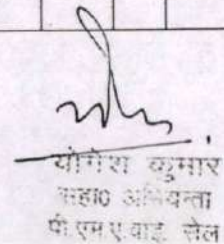 योगेश कुमार
सहा0 अभियन्ता
पी.एम.ए.वाई. सेल